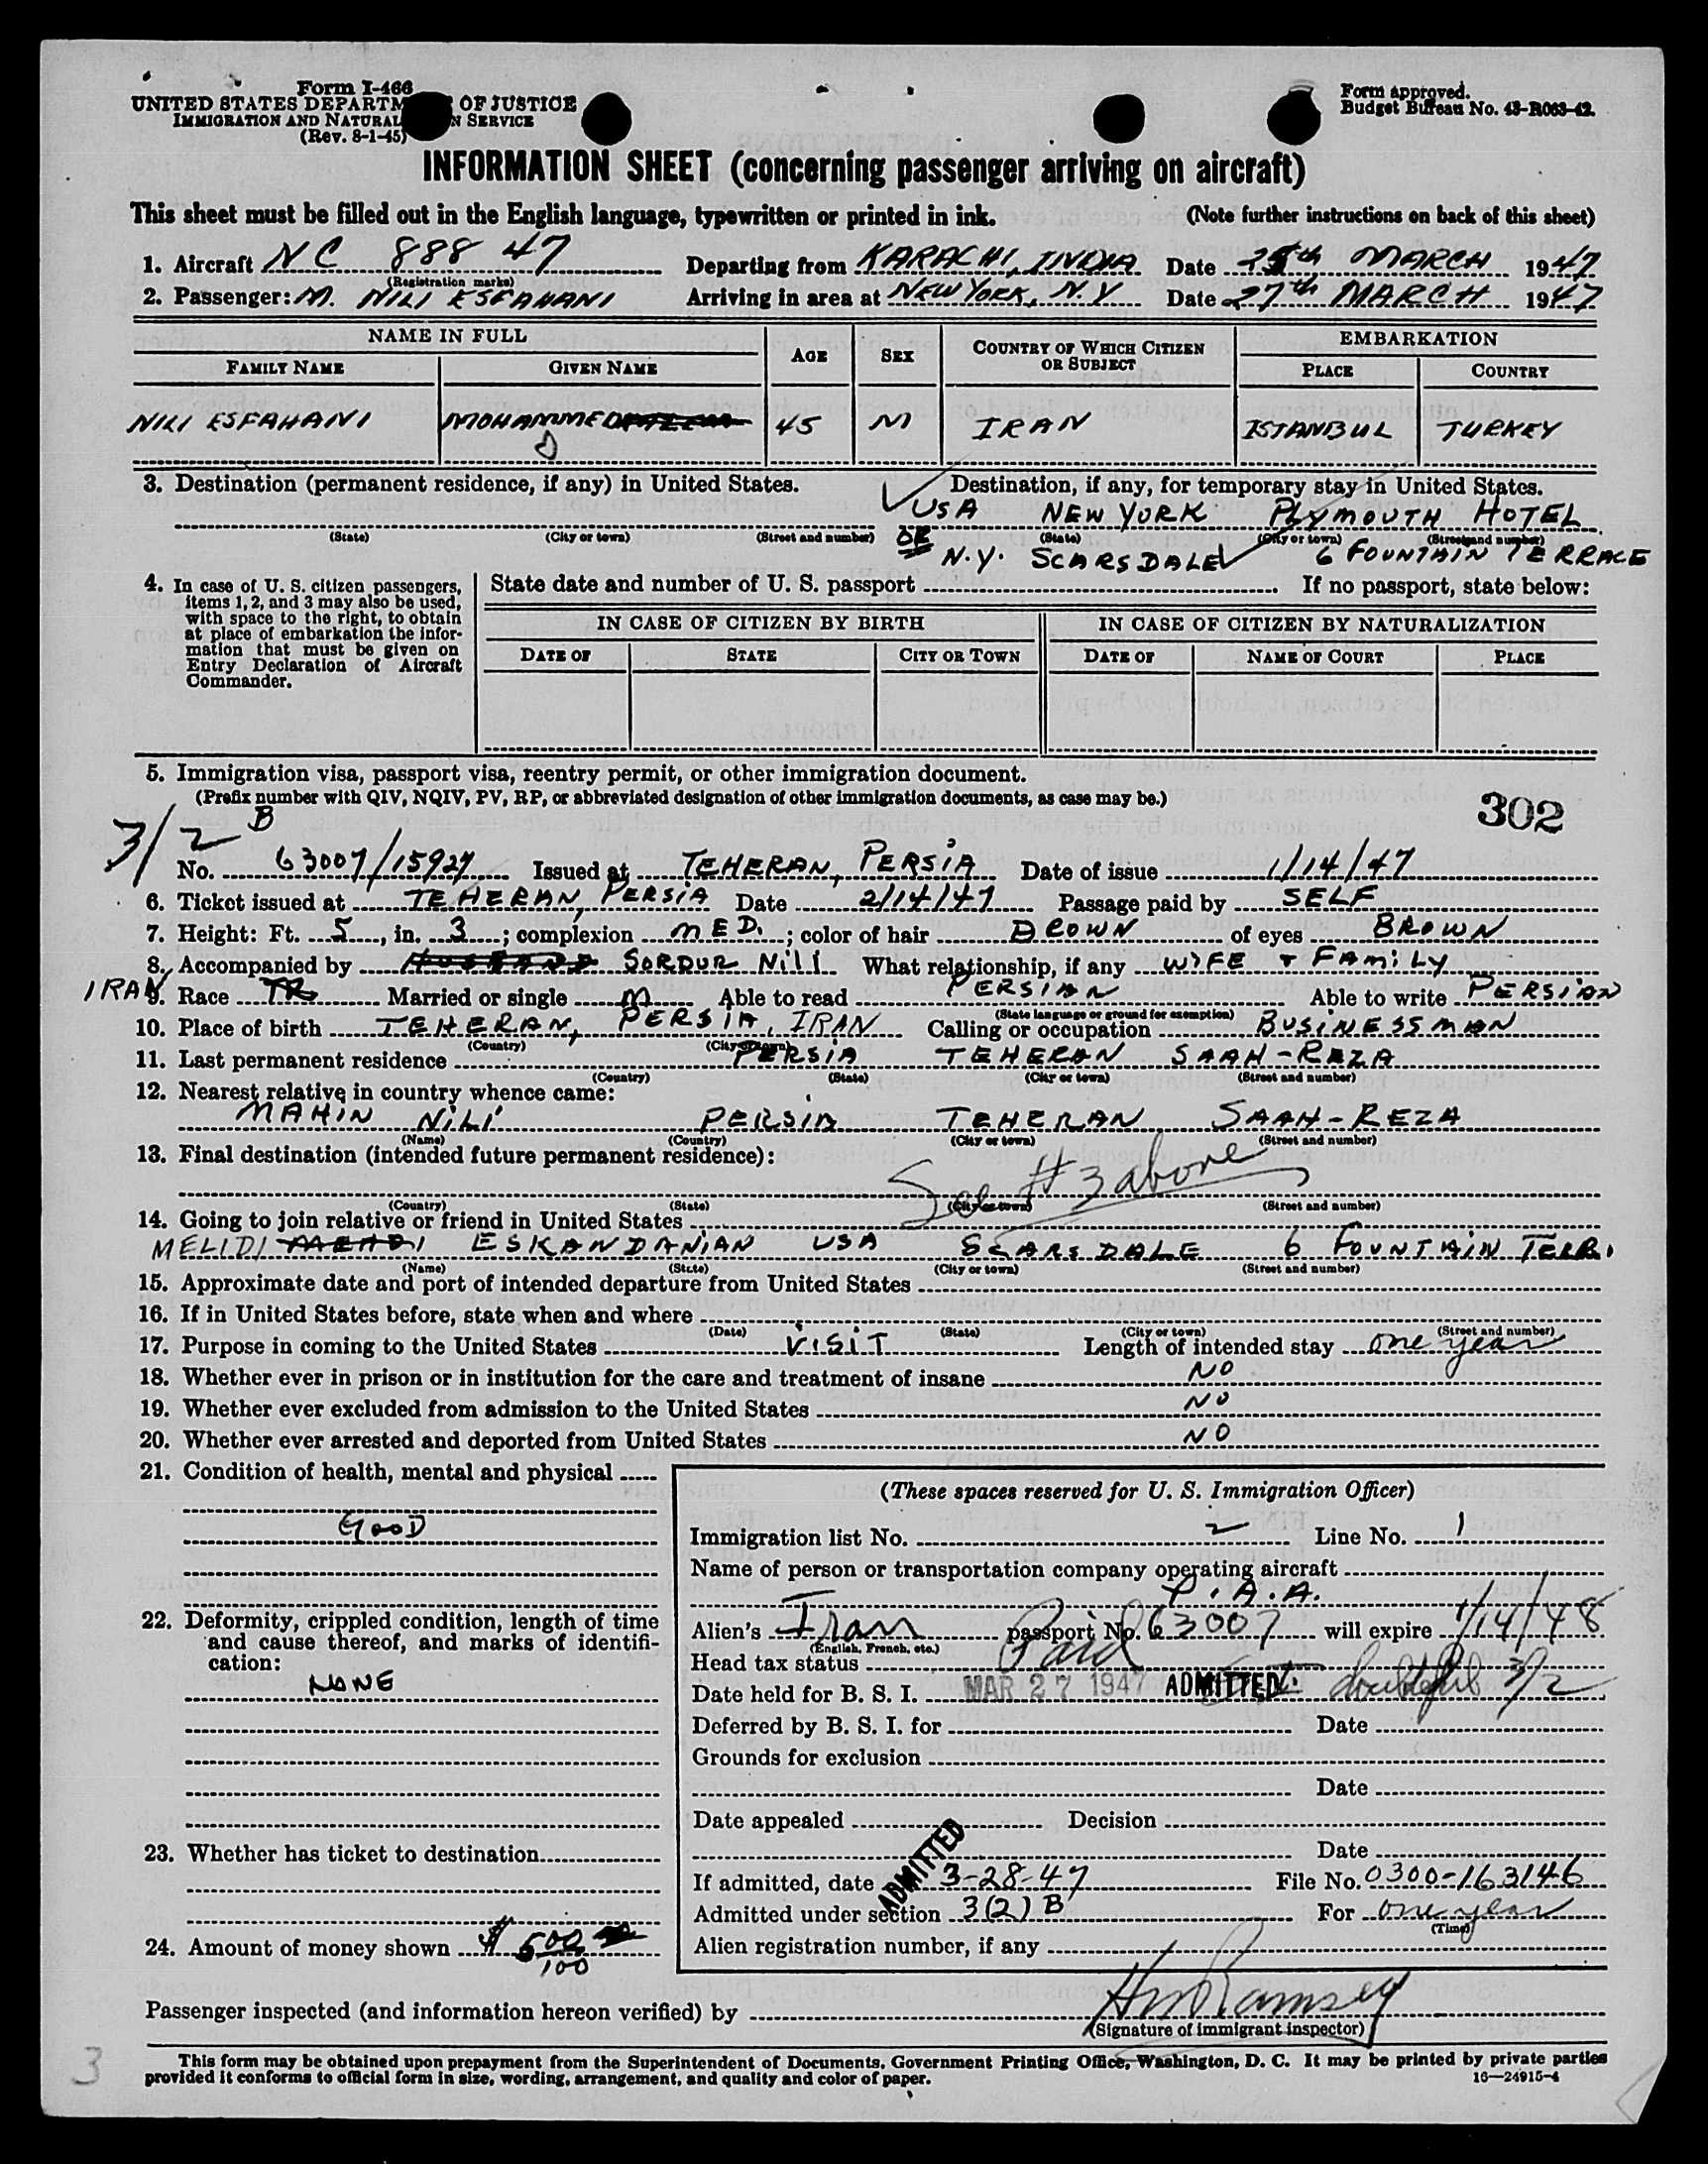 Form I-466
UNITED STATES DEPARTM OF JUSTICE
IMMIGRATION AND NATURAL N SERVICE
(Rev. 8-1-45)
Form approved.
Budget Bureau No. 43-R063-42.
INFORMATION SHEET (concerning passenger arriving on aircraft)
This sheet must be filled out in the English language, typewritten or printed in ink. (Note further instructions on back of this sheet)
1. Aircraft NC 888 47 Departing from KARACHI, INDIA Date MARCH 1947
(Registration marks)
2. Passenger: M. NILI ESFAHANI Arriving in area at NEW YORK, N.Y Date 27th MARCH 1947
NAME IN FULL AGE SEX COUNTRY OF WHICH CITIZEN OR SUBJECT EMBARKATION
FAMILY NAME GIVEN NAME PLACE COUNTRY
NILI ESFAHANI MOHAMMED 45 M IRAN ISTANBUL TURKEY
3. Destination (permanent residence, if any) in United States. Destination, if any, for temporary stay in United States.
USA NEW YORK PLYMOUTH HOTEL
(State) (City or town) (Street and number) (State) (City or town) (Street and number)
OR N.Y. SCARSDALE 6 FOUNTAIN TERRACE
4. In case of U. S. citizen passengers, items 1, 2, and 3 may also be used, with space to the right, to obtain at place of embarkation the information that must be given on Entry Declaration of Aircraft Commander.
State date and number of U. S. passport If no passport, state below:
IN CASE OF CITIZEN BY BIRTH IN CASE OF CITIZEN BY NATURALIZATION
DATE OF STATE CITY OR TOWN DATE OF NAME OF COURT PLACE
5. Immigration visa, passport visa, reentry permit, or other immigration document.
(Prefix number with QIV, NQIV, PV, RP, or abbreviated designation of other immigration documents, as case may be.)
302
3/2 B
No. 63007/15927 Issued at TEHERAN, PERSIA Date of issue 1/14/47
6. Ticket issued at TEHERAN, PERSIA Date 2/14/47 Passage paid by SELF
7. Height: Ft. 5, in. 3; complexion MED.; color of hair BROWN of eyes BROWN
8. Accompanied by HUSBAND SORDUR NILI What relationship, if any WIFE + FAMILY
IRAN
9. Race TR Married or single M Able to read PERSIAN Able to write PERSIAN
(State language or ground for exemption)
10. Place of birth TEHERAN, PERSIA, IRAN Calling or occupation BUSINESSMAN
(Country) (City or town)
11. Last permanent residence PERSIA TEHERAN SAAH-REZA
(Country) (State) (City or town) (Street and number)
12. Nearest relative in country whence came:
MAHIN NILI PERSIA TEHERAN SAAH-REZA
(Name) (Country) (City or town) (Street and number)
13. Final destination (intended future permanent residence):
See #3 above
(Country) (State) (City or town) (Street and number)
14. Going to join relative or friend in United States
MELIDI MEHDI ESKANDANIAN USA SCARSDALE 6 FOUNTAIN TERR.
(Name) (State) (City or town) (Street and number)
15. Approximate date and port of intended departure from United States
16. If in United States before, state when and where
(Date) (State) (City or town) (Street and number)
17. Purpose in coming to the United States VISIT Length of intended stay one year
18. Whether ever in prison or in institution for the care and treatment of insane NO
19. Whether ever excluded from admission to the United States NO
20. Whether ever arrested and deported from United States NO
21. Condition of health, mental and physical
GOOD
22. Deformity, crippled condition, length of time and cause thereof, and marks of identification:
NONE
23. Whether has ticket to destination
24. Amount of money shown $ 500
100
(These spaces reserved for U. S. Immigration Officer)
Immigration list No. 2 Line No. 1
Name of person or transportation company operating aircraft
P.A.A.
Alien's Iran passport No. 63007 will expire 1/14/48
(English, French, etc.)
Head tax status Paid
Date held for B. S. I. MAR 27 1947 ADMITTED doubtful 3/2
Deferred by B. S. I. for Date
Grounds for exclusion
Date
Date appealed Decision
Date
ADMITTED
If admitted, date 3-28-47 File No. 0300-163146
Admitted under section 3(2) B For one year
(Time)
Alien registration number, if any
Passenger inspected (and information hereon verified) by Ramsey
(Signature of immigrant inspector)
This form may be obtained upon prepayment from the Superintendent of Documents, Government Printing Office, Washington, D. C. It may be printed by private parties
provided it conforms to official form in size, wording, arrangement, and quality and color of paper.
16—24915-4
3